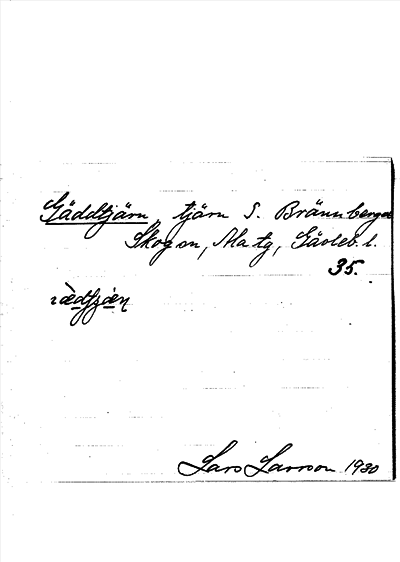 Gäddtjärn, tjärn S. Brännberga
Skogen, Ala tg, Gävleb. l.
35.
Lars Larsson 1930